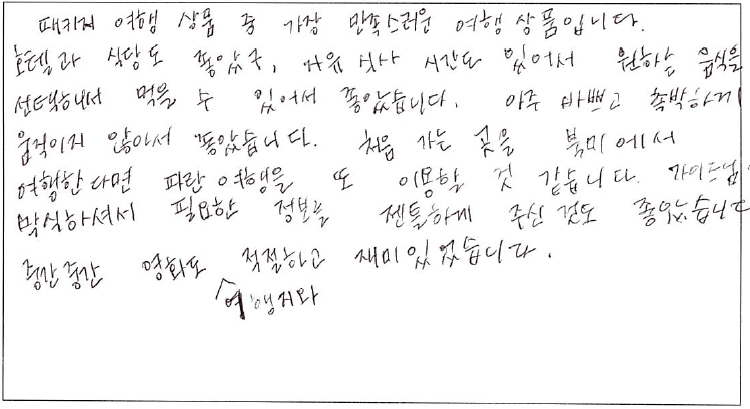 패키지 여행 상품 중 가장 만족스러운 여행 상품입니다.
호텔과 식당도 좋았고, 자유 식사 시간도 있어서 원하는 음식을
선택해서 먹을 수 있어서 좋았습니다. 아주 바쁘고 촉박하게
움직이지 않아서 좋았습니다. 처음 가는 곳을 북미에서
여행한다면 파란 여행을 또 이용할 것 같습니다. 가이드님이
박식하셔서 필요한 정보를 젠틀하게 주신 것도 좋았습니다
중간중간 영화도 적절하고 재미있었습니다.
여행지와